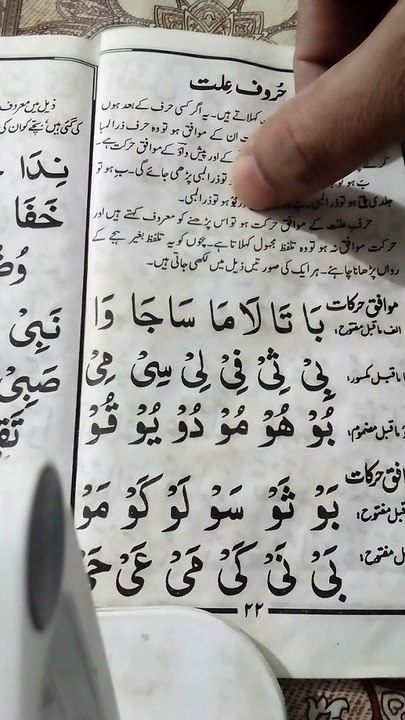 حُروف عِلت
کہلاتے ہیں۔ یہ اگر کسی حرف کے بعد ہوں
ان کے موافق ہو تو وہ حرف ذرا لمبا
کے اور پیش واؤ کے موافق حرکت ہے۔
تو ذرا لمبی پڑھی جائے گی۔ ب ہو تو
جلدی ہو تو ذرا لمبی۔
حرفِ علت کے موافق حرکت ہو تو اس پڑھنے کو معروف کہتے ہیں اور
حرکت موافق نہ ہو تو وہ تلفظ مجہول کہلاتا ہے۔ بچوں کو یہ تلفظ بغیر ہجے کے
رواں پڑھانا چاہئے۔ ہر ایک کی صورتیں ذیل میں لکھی جاتی ہیں۔
موافق حرکات
الف ماقبل مفتوح: بَا تَا لَا مَا سَا جَا وَا
ماقبل کسور: بِیْ ثِیْ فِیْ لِیْ سِیْ مِیْ
ماقبل مضموم: بُوْ هُوْ مُوْ دُوْ یُوْ قُوْ
فق حرکات
قبل مفتوح: بَوْ ثَوْ سَوْ لَوْ کَوْ مَوْ
ل مفتوح: بَیْ نَیْ کَیْ مَیْ عَیْ حَیْ
۲۲
ذیل میں معروف
کی گئی ہیں، بچے کو ان کی
نِدَا
خَفَا
نَبِیْ
صَبِیْ